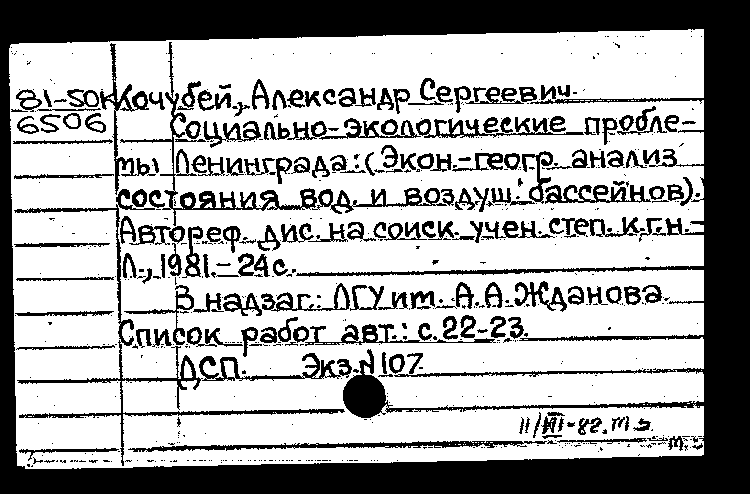 81-50К Кочубей, Александр Сергеевич.
6506 Социально-экологические пробле-
мы Ленинграда: (Экон.-геогр. анализ
состояния вод. и воздуш. бассейнов).
Автореф. дис. на соиск. учен. степ. к.г.н.-
Л., 1981.-24с.
В надзаг.: ЛГУ им. А.А.Жданова.
Список работ авт.: с.22-23.
ДСП. Экз.N107.
11/III-82.